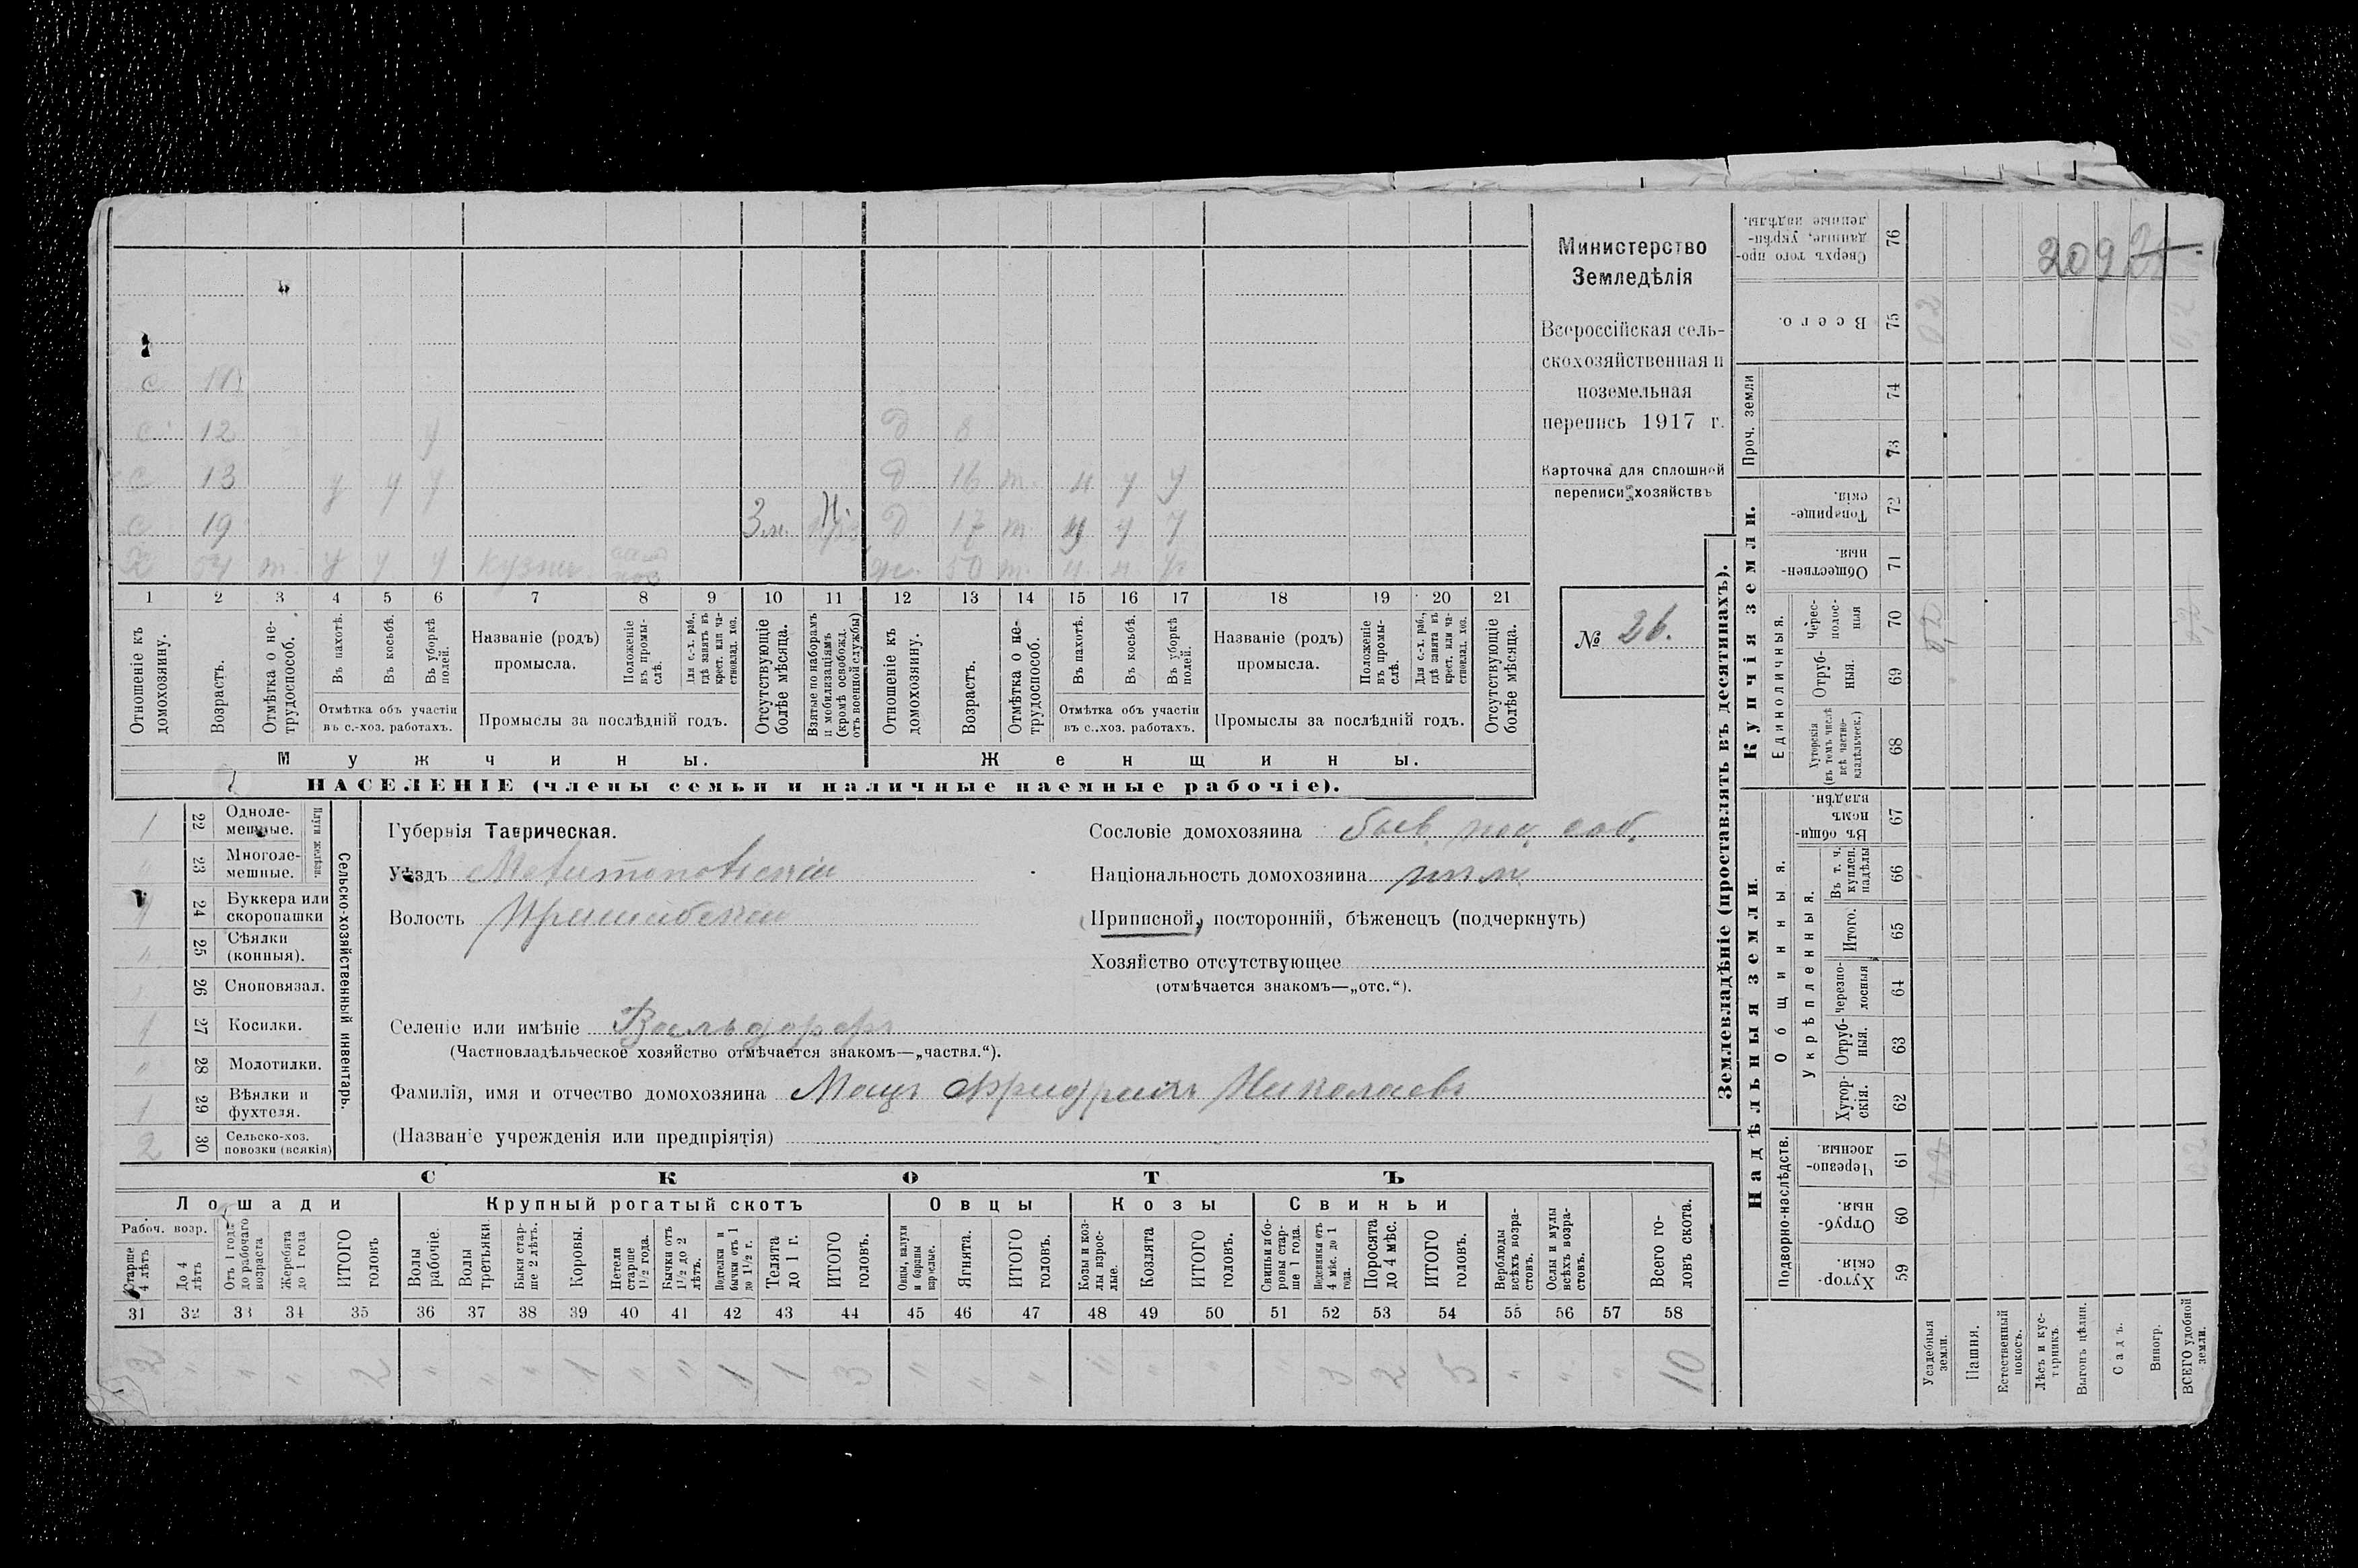 Министерство
Земледѣлія
Всероссійская сель-
скохозяйственная и
поземельная
перепись 1917 г.
Карточка для сплошной
переписи хозяйствъ
№ 26.
с
с 12 у Д 8
с 13 у у у Д 16 т. у у у
с 19 3 м. Д 17 т. у у у
54 т. у у у кузнец ж. 50 т. ч. ч. у
1 2 3 4 5 6 7 8 9 10 11 12 13 14 15 16 17 18 19 20 21
Отношеніе къ домохозяину.
Возрастъ.
Отмѣтка о не-трудоспособ.
Въ пахотѣ.
Въ косьбѣ.
Въ уборкѣ полей.
Отмѣтка объ участіи въ с.-хоз. работахъ.
Названіе (родъ) промысла.
Положеніе въ промы-слѣ.
Для с.-х. раб., гдѣ занятъ въ крест. или ча-стновлад. хоз.
Промыслы за послѣдній годъ.
Отсутствующіе болѣе мѣсяца.
Взятые по наборамъ и мобилизаціямъ (кромѣ освобожд. отъ военной службы)
Отношеніе къ домохозяину.
Возрастъ.
Отмѣтка о не-трудоспособ.
Въ пахотѣ.
Въ косьбѣ.
Въ уборкѣ полей.
Отмѣтка объ участіи въ с..хоз. работахъ.
Названіе (родъ) промысла.
Положеніе въ промы-слѣ.
Для с.-х. раб., гдѣ занята въ крест. или ча-стновлад. хоз.
Промыслы за послѣдній годъ.
Отсутствующіе болѣе мѣсяца.
Мужчины. Женщины.
НАСЕЛЕНІЕ (члены семьи и наличные наемные рабочіе).
1 22 Одноле-мешные.
" 23 Многоле-мешные.
Плуги желѣзн.
24 Буккера или скоропашки
" 25 Сѣялки (конныя).
" 26 Сноповязал.
1 27 Косилки.
" 28 Молотилки.
1 29 Вѣялки и фухтеля.
2 30 Сельско-хоз. повозки (всякія)
Сельско-хозяйственный инвентарь.
Губернія Таврическая.
Уѣздъ Мелитопольскій
Волость Пришибская
Сословіе домохозяина быв. пос. соб.
Національность домохозяина нѣм.
Приписной, посторонній, бѣженецъ (подчеркнуть)
Хозяйство отсутствующее
(отмѣчается знакомъ—„отс.“).
Селеніе или имѣніе Вальдорфъ
(Частновладѣльческое хозяйство отмѣчается знакомъ—„частвл.“).
Фамилія, имя и отчество домохозяина Мацъ Фридрихъ Николаевъ
(Названіе учрежденія или предпріятія)
СКОТЪ
Лошади Крупный рогатый скотъ Овцы Козы Свиньи
Рабоч. возр.
Старше 4 лѣтъ
До 4 лѣтъ
Отъ 1 года до рабочаго возраста
Жеребята до 1 года
ИТОГО головъ
Волы рабочіе.
Волы третьяки.
Быки стар-ше 2 лѣтъ.
Коровы.
Нетели старше 1 1/2 года.
Бычки отъ 1 1/2 до 2 лѣтъ.
Подтелки и бычки отъ 1 до 1 1/2 г.
Телята до 1 г.
ИТОГО головъ.
Овцы, валухи и бараны взрослые.
Ягнята.
ИТОГО головъ.
Козы и коз-лы взрос-лые.
Козлята
ИТОГО головъ.
Свиньи и бо-ровы стар-ше 1 года.
Подсвинки отъ 4 мѣс. до 1 года.
Поросята до 4 мѣс.
ИТОГО головъ.
Верблюды всѣхъ возра-стовъ.
Ослы и мулы всѣхъ возра-стовъ.
Всего го-ловъ скота.
31 32 33 34 35 36 37 38 39 40 41 42 43 44 45 46 47 48 49 50 51 52 53 54 55 56 57 58
2 " " " 2 " " " 1 " " 1 1 3 " " " " " " 3 2 5 " " " 10
Землевладѣніе (проставлять въ десятинахъ).
Купчія земли.
Надѣльныя земли.
Сверхъ того про-данные, укрѣп-ленные надѣлы. 76
Всего. 75
Проч. земли 74 73
Товарище-скія. 72
Обществен-ныя. 71
Единоличныя.
Черес-полос-ныя 70
Отруб-ныя. 69
Хуторскія (въ томъ числѣ всѣ частно-владѣльческ.) 68
Общинныя.
Въ общи-номъ владѣн. 67
Укрѣпленныя.
Въ т. ч. куплен. надѣлы 66
Итого. 65
Черезпо-лосныя 64
Отруб-ныя. 63
Хутор-скія. 62
Подворно-наслѣдств.
Черезпо-лосныя. 61
Отруб-ныя. 60
Хутор-скія. 59
Усадебныя земли.
Пашня.
Естественный покосъ.
Лѣсъ и кус-тарникъ.
Выгонъ цѣлин.
Садъ.
Виногр.
ВСЕГО удобной земли.
209